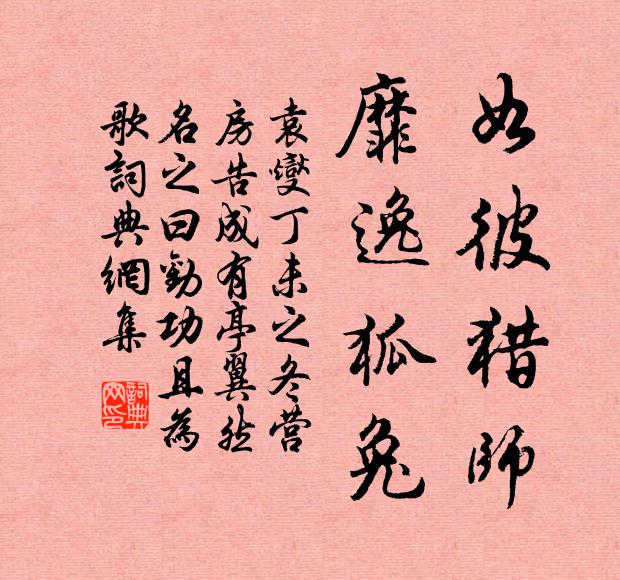 如彼猎師
靡逸狐兔
袁燮丁未之冬營
房告成有亭翼然
名之曰勸功且為
歌詞典網集
詞典
网印